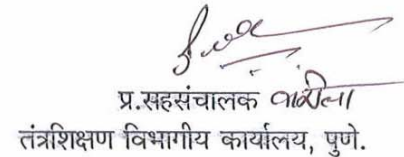 प्र.सहसंचालक
तंत्रशिक्षण विभागीय कार्यालय, पुणे.